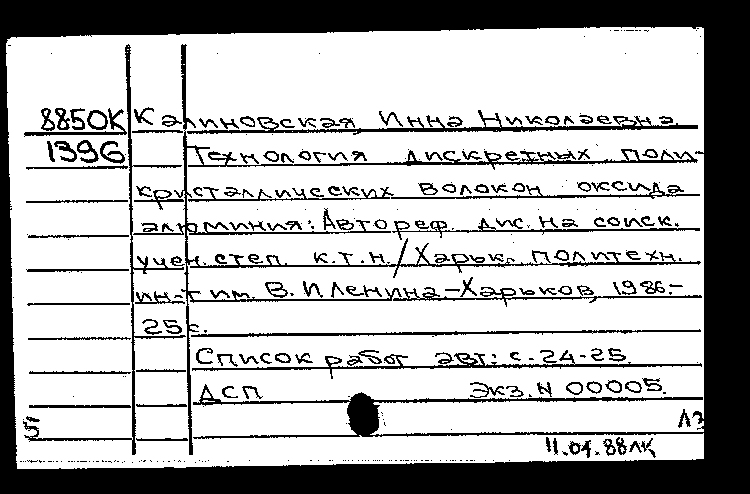 8850К Калиновская, Инна Николаевна
1396 Технология дискретных поли-
кристаллических волокон оксида
алюминия: Автореф. дис. на соиск.
учен. степ. к.т.н. / Харьк. политехн.
ин-т им. В. И. Ленина.-Харьков, 1986.-
25 с.
Список работ авт.: с. 24-25.
ДСП Экз. N 00005.
ЛЗ